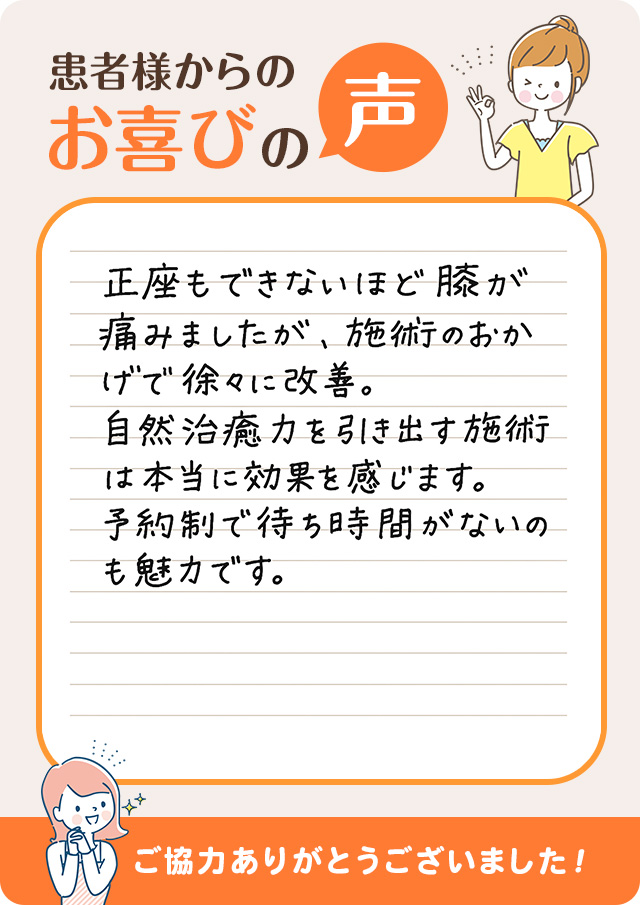 患者様からの
お喜びの声
正座もできないほど膝が
痛みましたが、施術のおか
げで徐々に改善。
自然治癒力を引き出す施術
は本当に効果を感じます。
予約制で待ち時間がないの
も魅力です。
ご協力ありがとうございました！